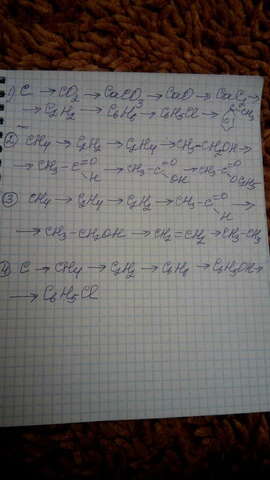 1) C → CO2 → CaCO3 → CaO → CaC2 →
→ C2H2 → C6H6 → C6H5Cl → CH3
2) CH4 → C2H2 → C2H4 → CH3-CH2OH →
→ CH3-C=O H → CH3-C=O OH → CH3-C=O OC2H5
3) CH4 → C2H4 → C2H2 → CH3-C=O H →
→ CH3-CH2OH → CH2=CH2 → CH3-CH3
4) C → CH4 → C2H2 → C6H6 → C6H5OH →
→ C6H5Cl